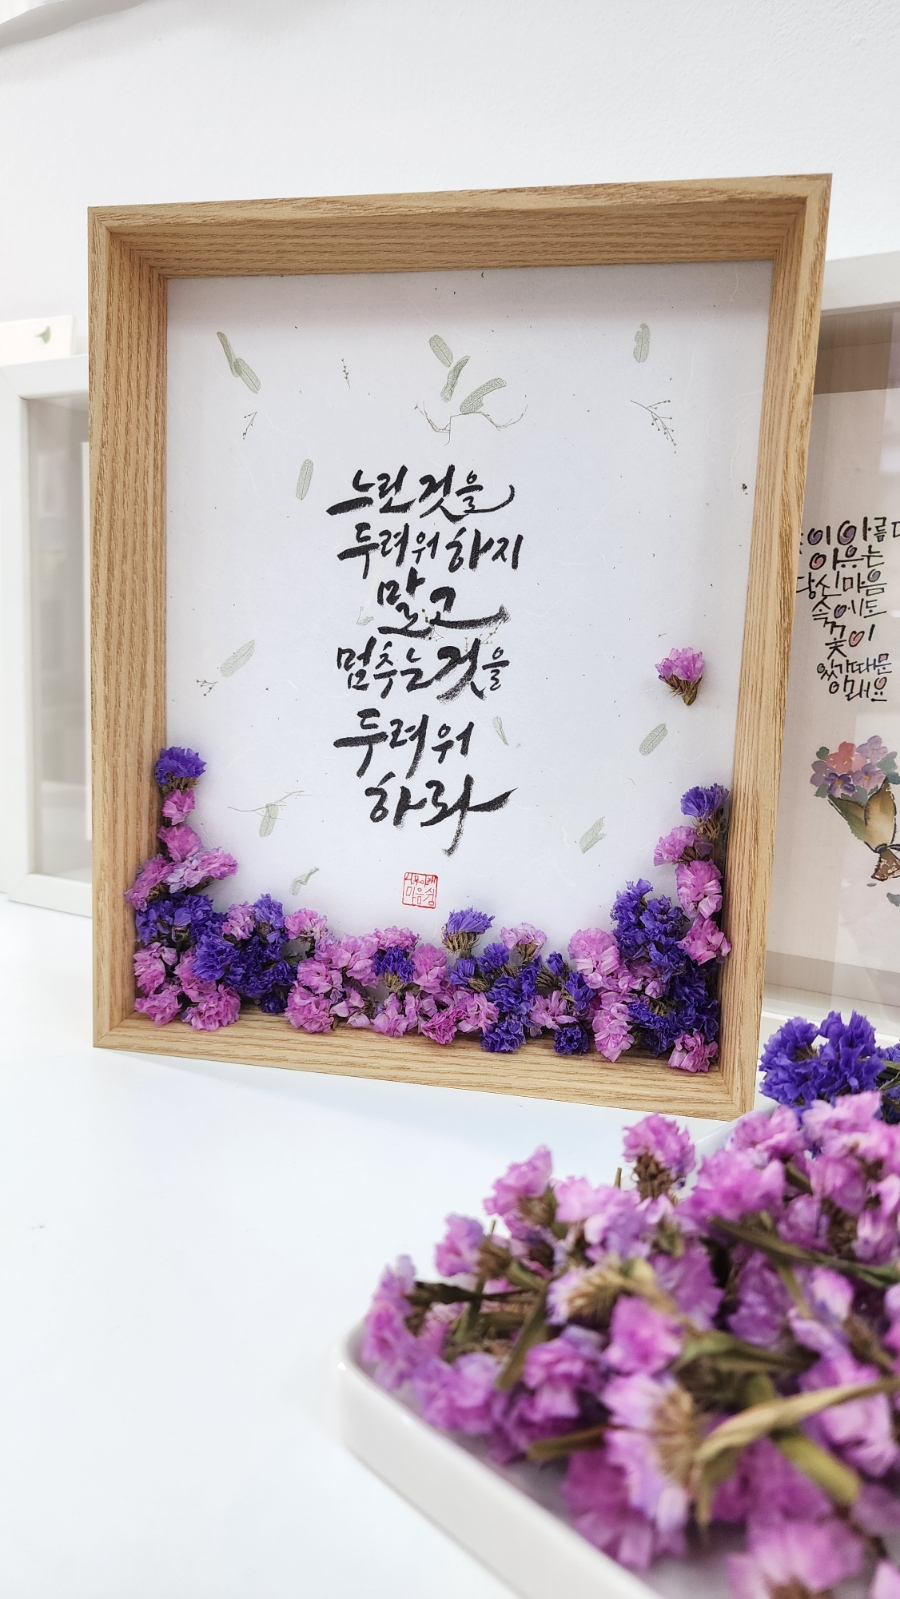 느린것을
두려워하지
말고
멈추는것을
두려워
하라
마음심
이 아름다
마음는
당신마음
속에도
꽃이
있기때문
이래요